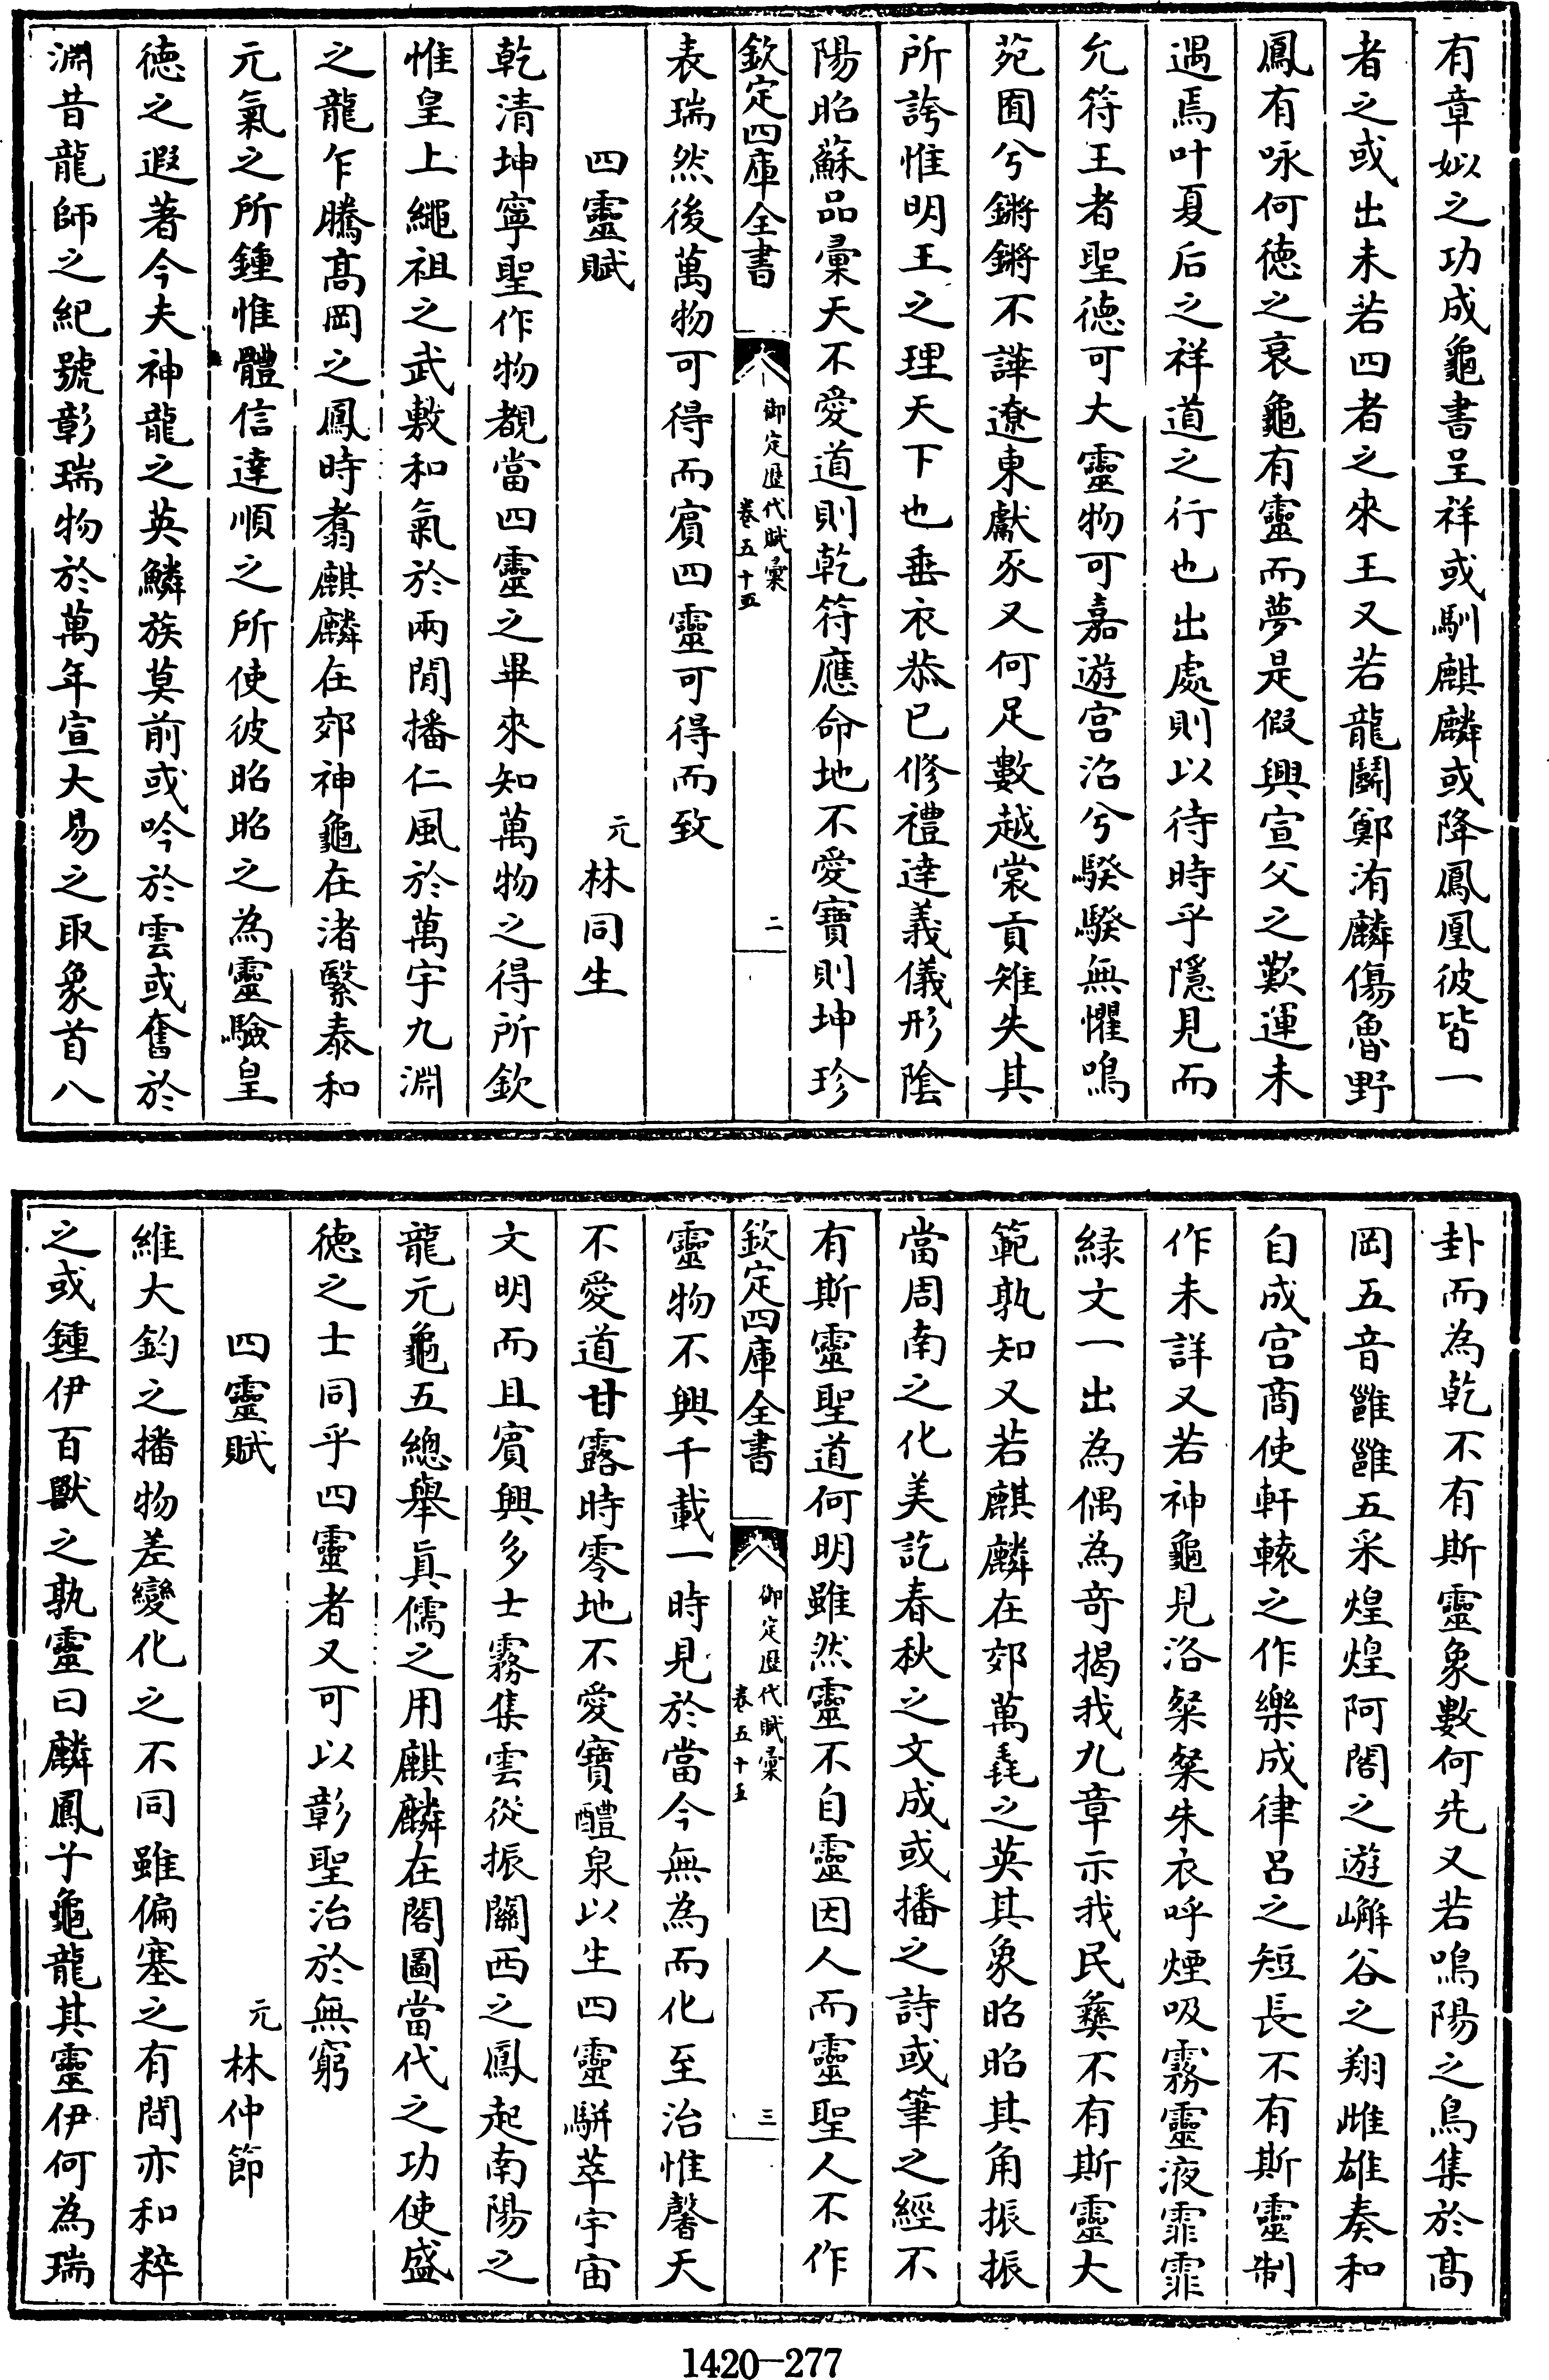 有章姒之功成龜書呈祥或馴麒麟或降鳳凰彼皆一
者之或出未若四者之來王又若龍鬭鄭洧麟傷魯野
鳳有咏何徳之衰龜有靈而夢是假興宣父之歎運未
遇焉叶夏后之祥道之行也出處則以待時乎隱見而
允符王者聖徳可大靈物可嘉遊宫沼兮騤騤無懼鳴
苑囿兮鏘鏘不譁遼東獻豕又何足數越裳貢雉失其
所誇惟明王之理天下也垂衣恭已修禮達義儀形陰
陽昭蘇品彚天不愛道則乾符應命地不愛寶則坤珍
欽定四庫全書
御定歴代賦彚
卷五十五
二
表瑞然後萬物可得而賓四靈可得而致
四靈賦
元林同生
乾清坤寧聖作物覩當四靈之畢來知萬物之得所欽
惟皇上繩祖之武敷和氣於兩間播仁風於萬宇九淵
之龍乍騰髙岡之鳳時翥麒麟在郊神龜在渚繄泰和
元氣之所鍾惟體信達順之所使彼昭昭之為靈驗皇
徳之遐著今夫神龍之英鱗族莫前或吟於雲或奮於
淵昔龍師之紀號彰瑞物於萬年宣大易之取象首八
卦而為乾不有斯靈象數何先又若鳴陽之鳥集於髙
岡五音雝雝五采煌煌阿閣之遊嶰谷之翔雌雄奏和
自成宫商使軒轅之作樂成律吕之短長不有斯靈制
作未詳又若神龜見洛粲粲朱衣呼煙吸霧靈液霏霏
緑文一出為偶為竒揭我九章示我民彞不有斯靈大
範孰知又若麒麟在郊萬毳之英其象昭昭其角振振
當周南之化美訖春秋之文成或播之詩或筆之經不
有斯靈聖道何明雖然靈不自靈因人而靈聖人不作
欽定四庫全書
御定歴代賦彚
卷五十五
三
靈物不興千載一時見於當今無為而化至治惟馨天
不愛道甘露時零地不愛寶醴泉以生四靈駢萃宇宙
文明而且賓興多士霧集雲從振關西之鳳起南陽之
龍元龜五總舉真儒之用麒麟在閣圖當代之功使盛
徳之士同乎四靈者又可以彰聖治於無窮
四靈賦
元林仲節
維大鈞之播物差變化之不同雖偏塞之有間亦和粹
之或鍾伊百獸之孰靈曰麟鳳乎龜龍其靈伊何為瑞
1420-277